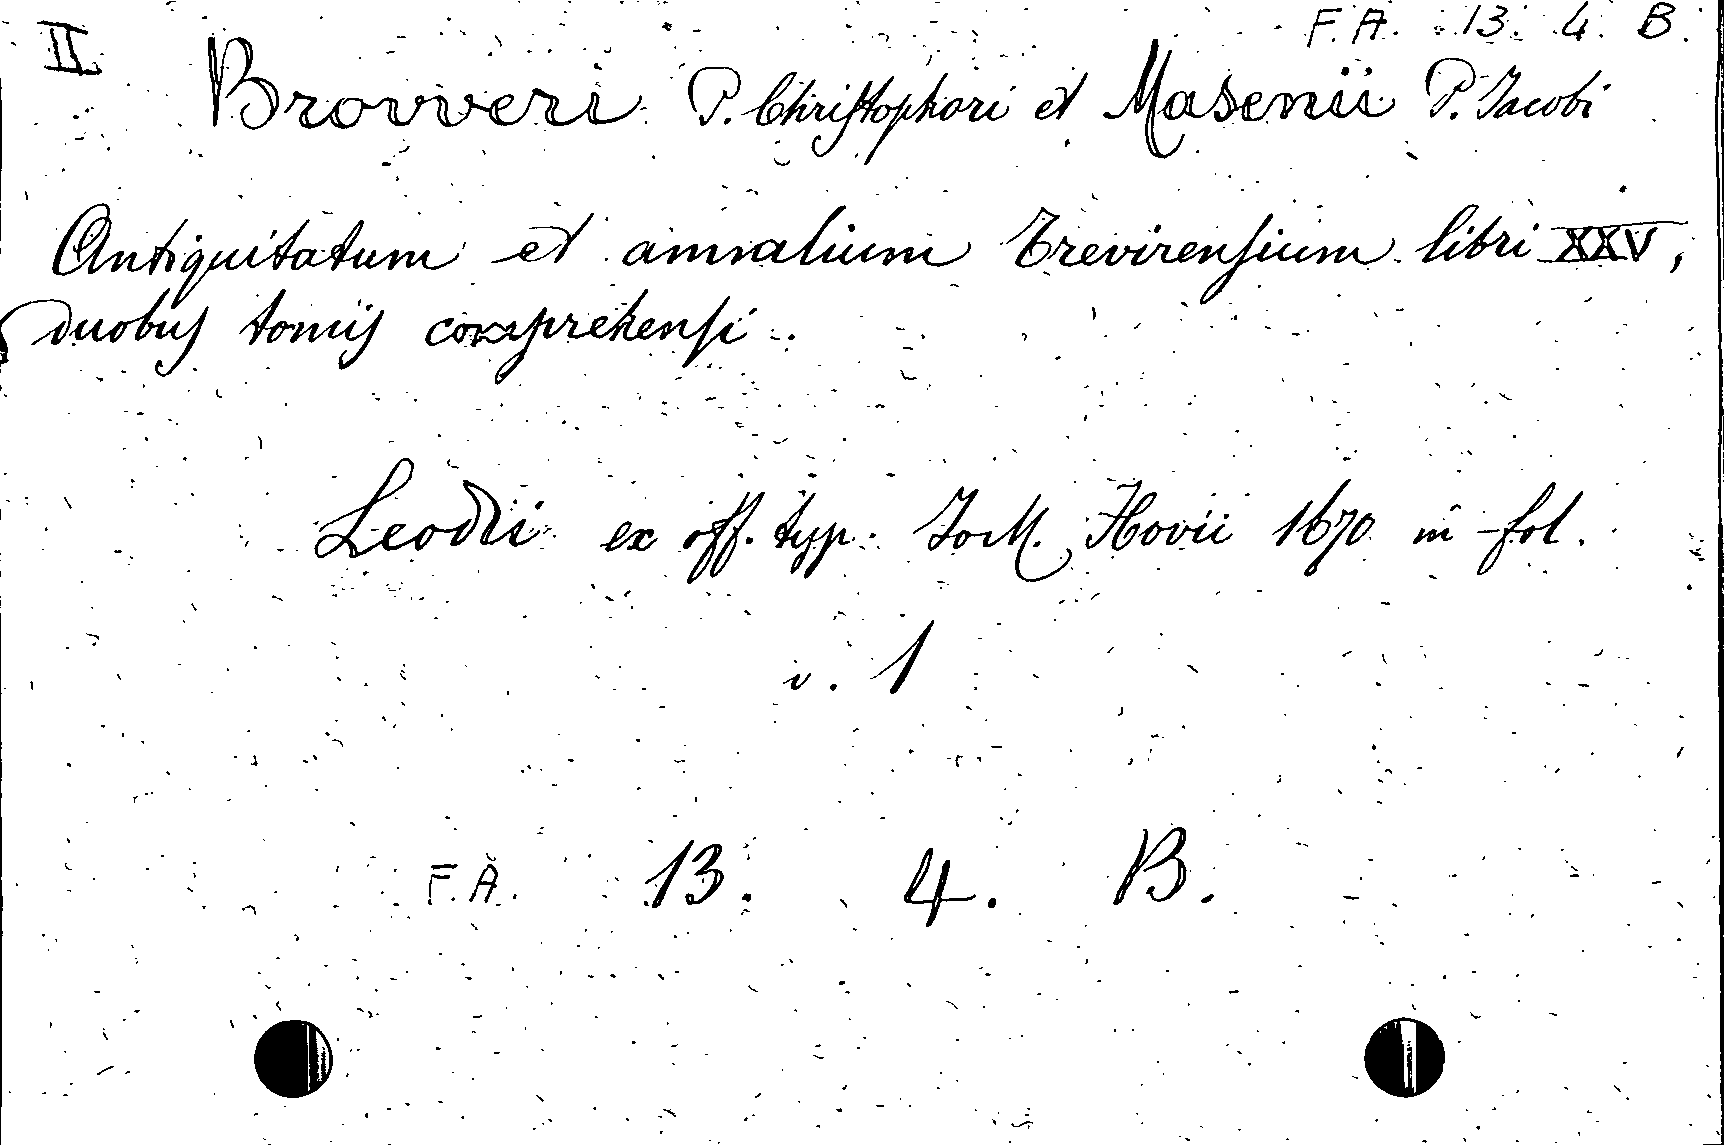 II F. A. 13. 4. B.
Brovveri P. Christophori et Masenii P. Jacobi
Antiquitatum et annalium Trevirensium libri XXV,
duobus tomis comprehensi.
Leodii ex off. typ. Jo M. Hovii 1670 in-fol.
v. 1
F. A. 13. 4. B.